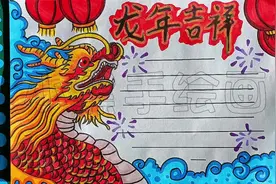 龙年吉祥
手绘画